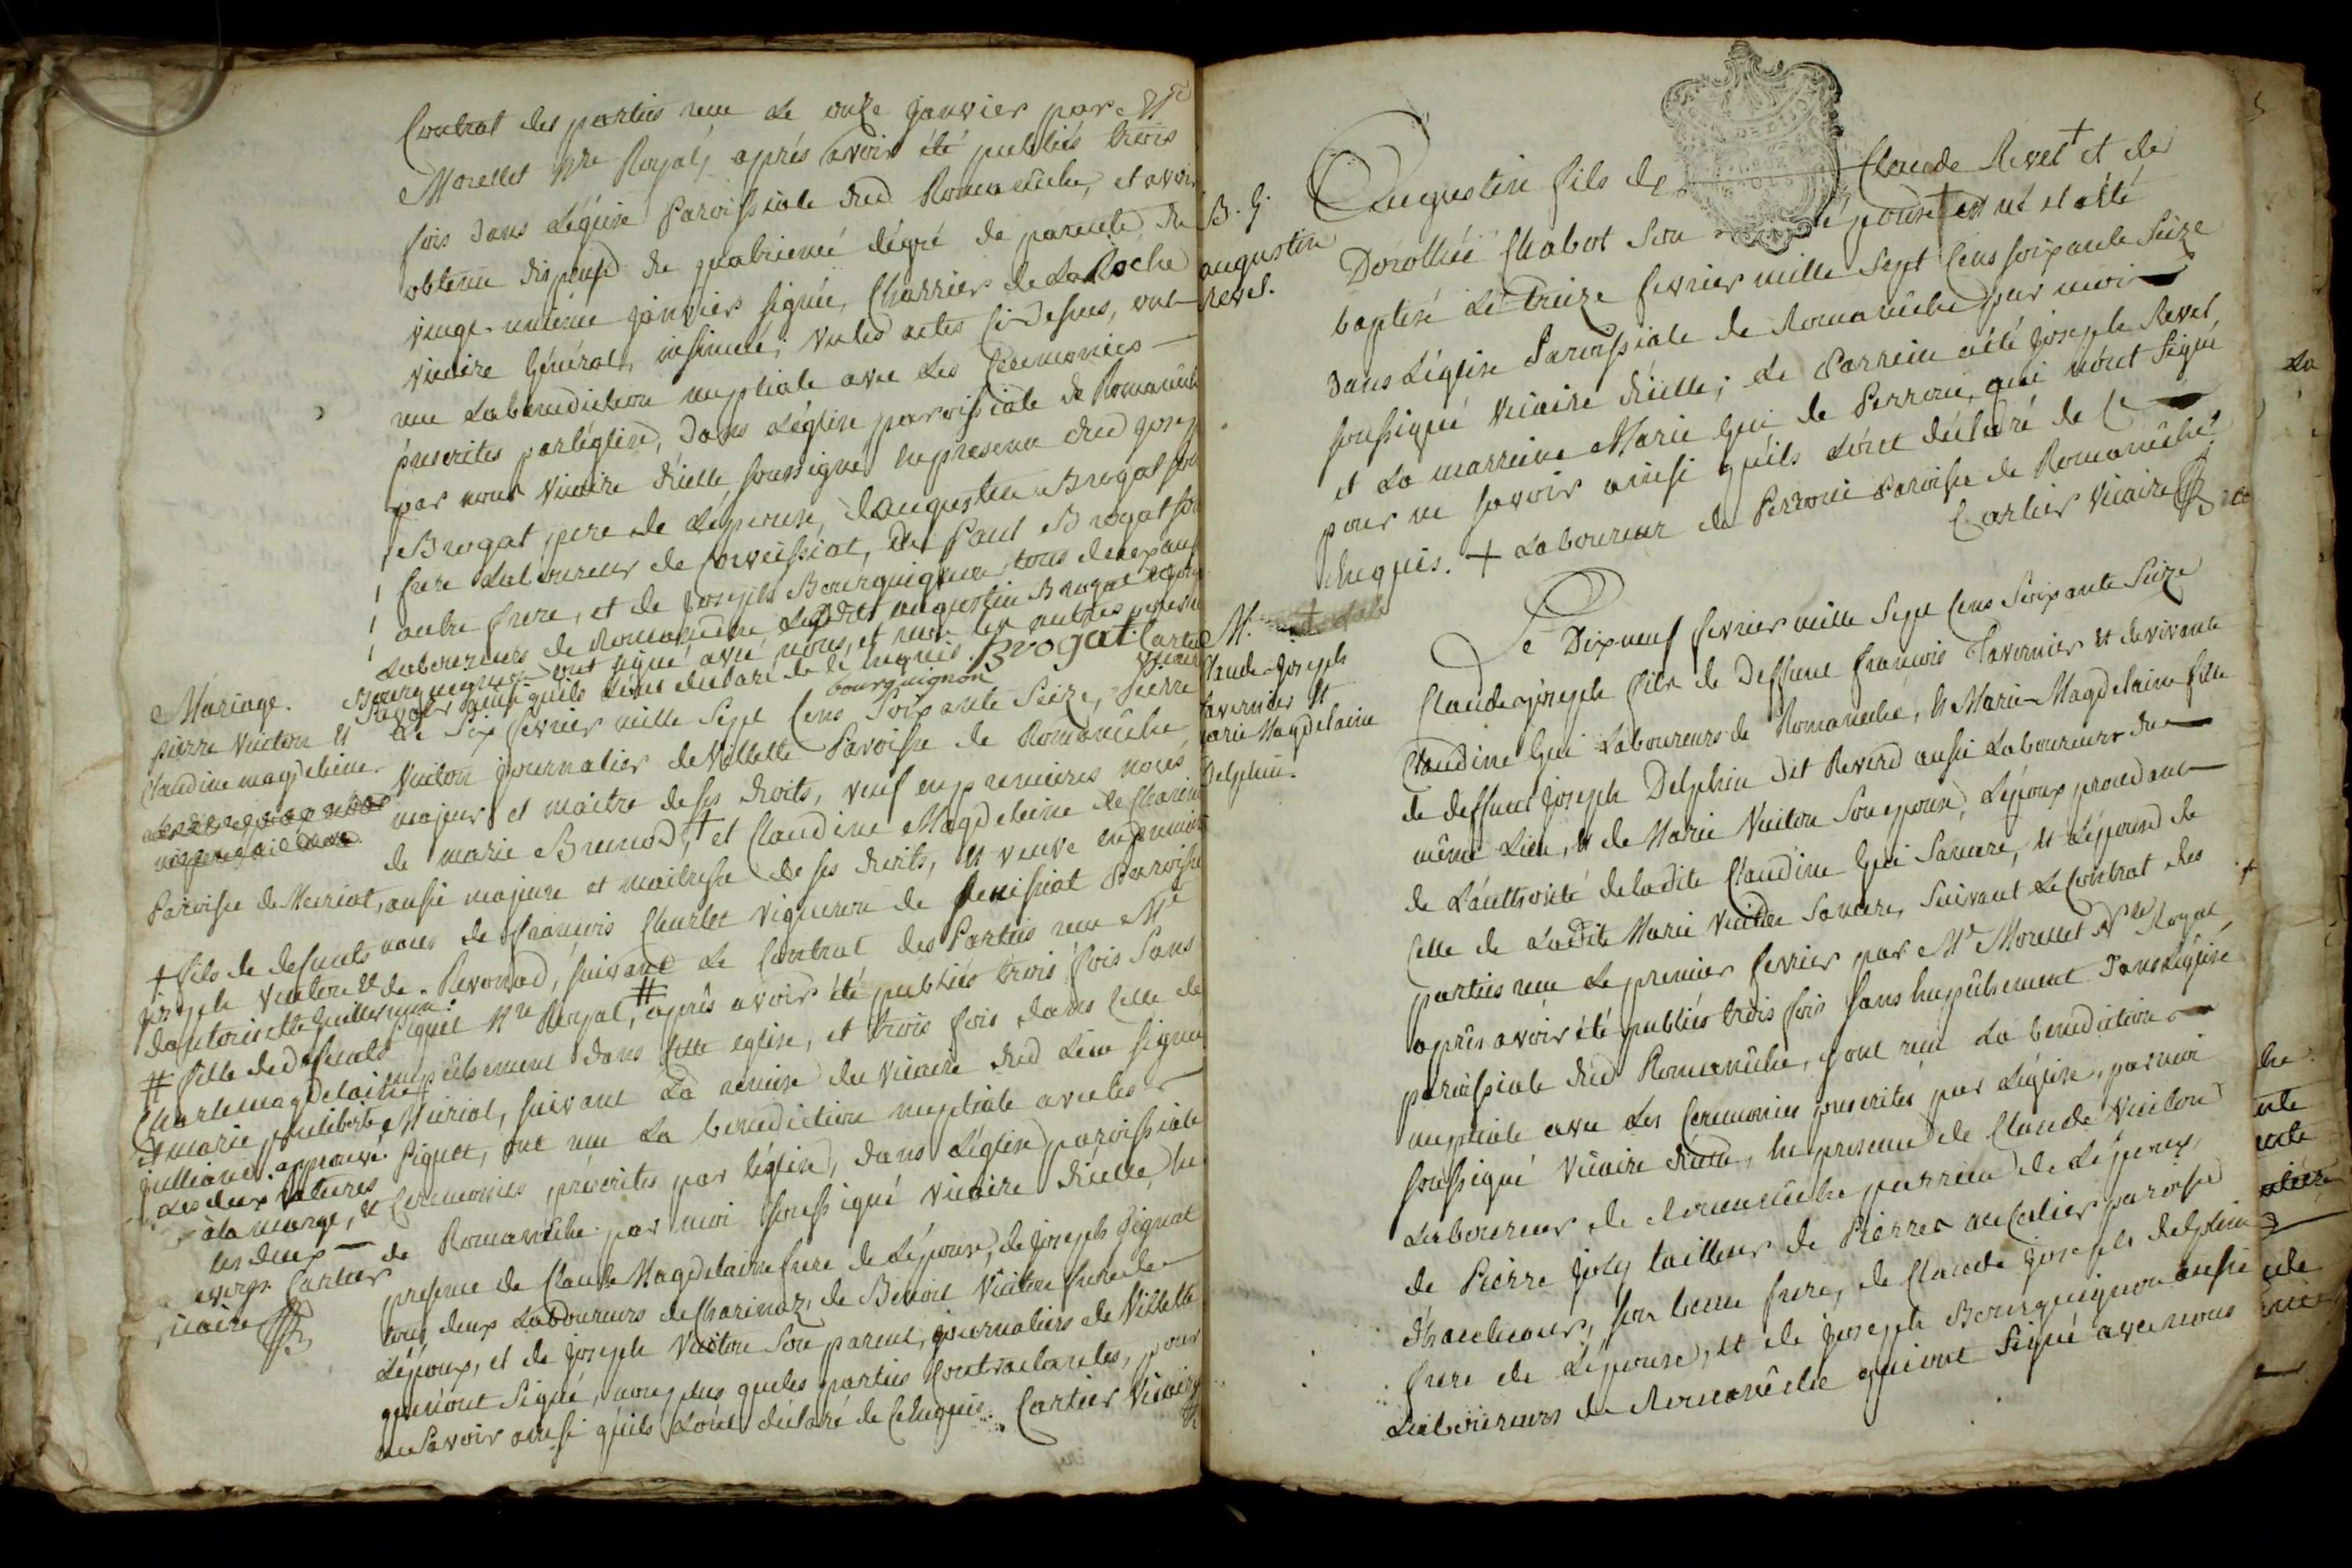 Contrat des parties reçu le onze janvier par Me
Morellet Nre Royal, aprés avoir été publiés trois
fois dans L'église Paroissiale dud Romanêche, et avoir
obtenu dispense de quatrieme dégré de parenté du
vingt-unieme janvier signée, Charrier de LaRoche
vicaire Général, insinuée; vu les actes Ci-Dessus, ont
reçu La benediction nuptiale avec Les Ceremonies
prescrites par l'église, dans L'église paroissiale de Romanêche
par nous vicaire d'icelle soussigné en presence dud joseph
Brogat pere de L'épouse, d'augustin Brogat son
frere Laboureur de Corveissiat, de Paul Brogat son
autre frere, et de joseph Bourguignon tous deux aussi
Laboureurs de Romanêche, Ledit augustin Brogat et joseph
Bourguignon ont signé avec nous, et non les autres pour ne
Savoir ainsi qu'ils L'ont declaré de ce enquis. Brogat. Cartier
bourguignon vicaire
Mariage.
pierre Vuiton et
Claudine magdelaine
Le Six fevrier mille Sept Cens Soixante Seize, Pierre
Vuiton journalier de Villette Paroisse de Romanêche
majeur et maitre de ses droits, veuf en premieres noces
de marie Brunod, + et Claudine Magdelaine de Charinaz
Paroisse de Meiriat, aussi majeure et maitresse de ses droits, et veuve en premieres
noces de francois Charlet vigneron de Senissiat Paroisse
de Revonnad, suivant Le Contrat des Parties reçu Me
Piquet Nre Royal, # aprés avoir été publiés trois fois Sans
empêchement dans cette eglise, et trois fois dans celle de
Meiriat, suivant La remise du vicaire dud Lieu signée
Piquet, ont reçu La benediction nuptiale avec les
Ceremonies prescrites par l'église, dans L'église paroissiale
de Romanêche par moi soussigné vicaire d'icelle, en
presence de Claude Magdelaine frere de L'épouse, de joseph Pignat
tous deux Laboureurs de Charinaz, de Benoit Vuiton frere de
L'époux, et de joseph Vuiton Son parent, journaliers de Villette
qui n'ont Signé, non plus que les parties Contractantes, pour
ne Savoir ainsi qu'ils L'ont déclaré de Ce enquis. Cartier Vicaire
+ fils de defunts
joseph Vuiton et de
d'antoinette Guillermin.
# fille de defunts
Charle magdelaine
et marie philiberte
jullian. approuvé
Les deux ratures
à la marge, et
les deux
renvoys. Cartier
vicaire
B. G.
augustin
revel.
Augustin fils de Claude Revel + et de
Dorothée Chabot Son épouse est né et a été
baptisé Le treize fevrier mille Sept Cens soixante Seize
dans L'église Paroissiale de Romanêche par moi
soussigné vicaire d'icelle; Le Parrein a été joseph Revel,
et La marreine Marie Gui de Perroni, qui n'ont Signé
pour ne savoir ainsi qu'ils L'ont déclaré de Ce
enquis. + Laboureur de Perroni Paroisse de Romanêche
Cartier Vicaire
M.
Claude-Joseph
Tavernier et
Marie Magdelaine
Delphin.
Le Dixneuf fevrier mille Sept Cens Soixante Seize
Claude-joseph fils de Deffunt francois Tavernier et de vivante
Claudine Gui Laboureurs de Romanêche, et Marie-Magdelaine fille
de deffunt joseph Delphin dit Reverd aussi Laboureur du
même Lieu, et de Marie Vuiton Son epouse, L'époux procedant
de L'authorité de ladite Claudine Gui Sa mere, et L'épouse de
Celle de Ladite Marie Vuiton Sa mere, suivant Le Contrat des
parties reçu Le premier fevrier par Me Morellet Nre Royal
aprés avoir été publiés trois fois sans empêchement dans L'église
paroissiale dud Romanêche, ont reçu La benediction
nuptiale avec Les Ceremonies prescrites par L'église, par moi
soussigné Vicaire d'icelle, en presence de Claude Vuiton
Laboureur de Romanêche parrein de L'époux,
de Pierre joly tailleur de Pierres au Cellier paroisse
d'hautecour, son beau frere, de Claude joseph delphin
frere de L'épouse, et de joseph Bourguignon aussi
Laboureurs de Romanêche qui ont Signé avec nous